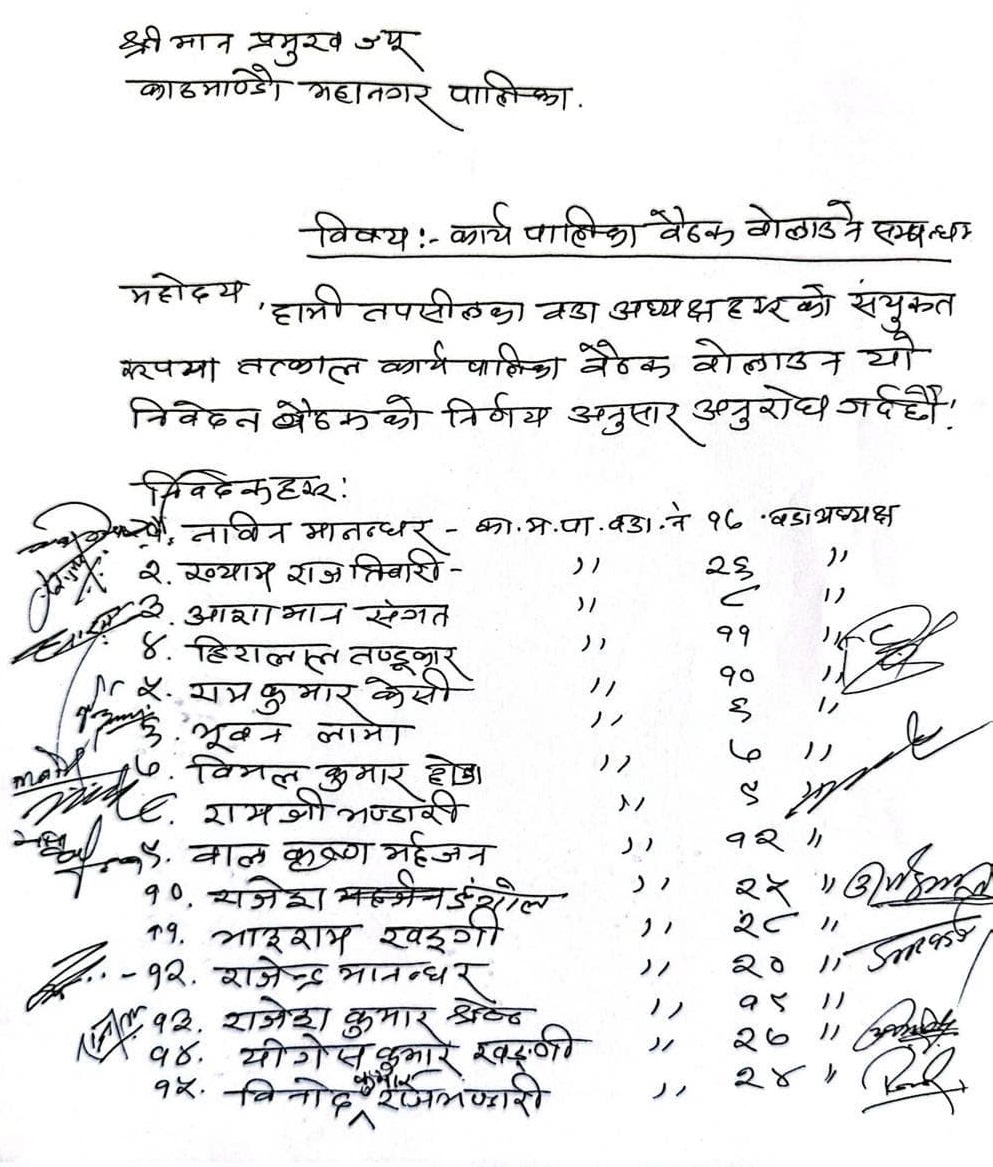 श्रीमान प्रमुख ज्यू
काठमाण्डौ महानगर पालिका.
विषय :- कार्य पालिका बैठक बोलाउने सम्बन्धमा
महोदय,
हामी तपसीलका वडा अध्यक्षहरूको संयुक्त
रूपमा तत्काल कार्य पालिका बैठक बोलाउन यो
निवेदन बैठकको निर्णय अनुसार अनुरोध गर्दछौं!
निवेदकहरू :
१. नाविन मानन्धर - का.म.पा.वडा.नं १७ वडाअध्यक्ष
२. श्याम राज तिवारी - ,, २६ ,,
३. आशामान संगत ,, ८ ,,
४. हिरालाल तण्डूकार ,, ११ ,,
५. राम कुमार केसी ,, १० ,,
६. भूवन लामा ,, ६ ,,
७. विमल कुमार होडा ,, ७ ,,
८. रामजी भण्डारी ,, ९ ,,
९. वाल कृष्ण महर्जन ,, १२ ,,
१०. राजेश डंगोल ,, २५ ,,
११. भाइराम खड्गी ,, २८ ,,
१२. राजेन्द्र मानन्धर ,, २० ,,
१३. राजेश कुमार श्रेष्ठ ,, १५ ,,
१४. योगेस कुमार खड्गी ,, २७ ,,
१५. विनोद कुमार राजभण्डारी ,, २४ ,,